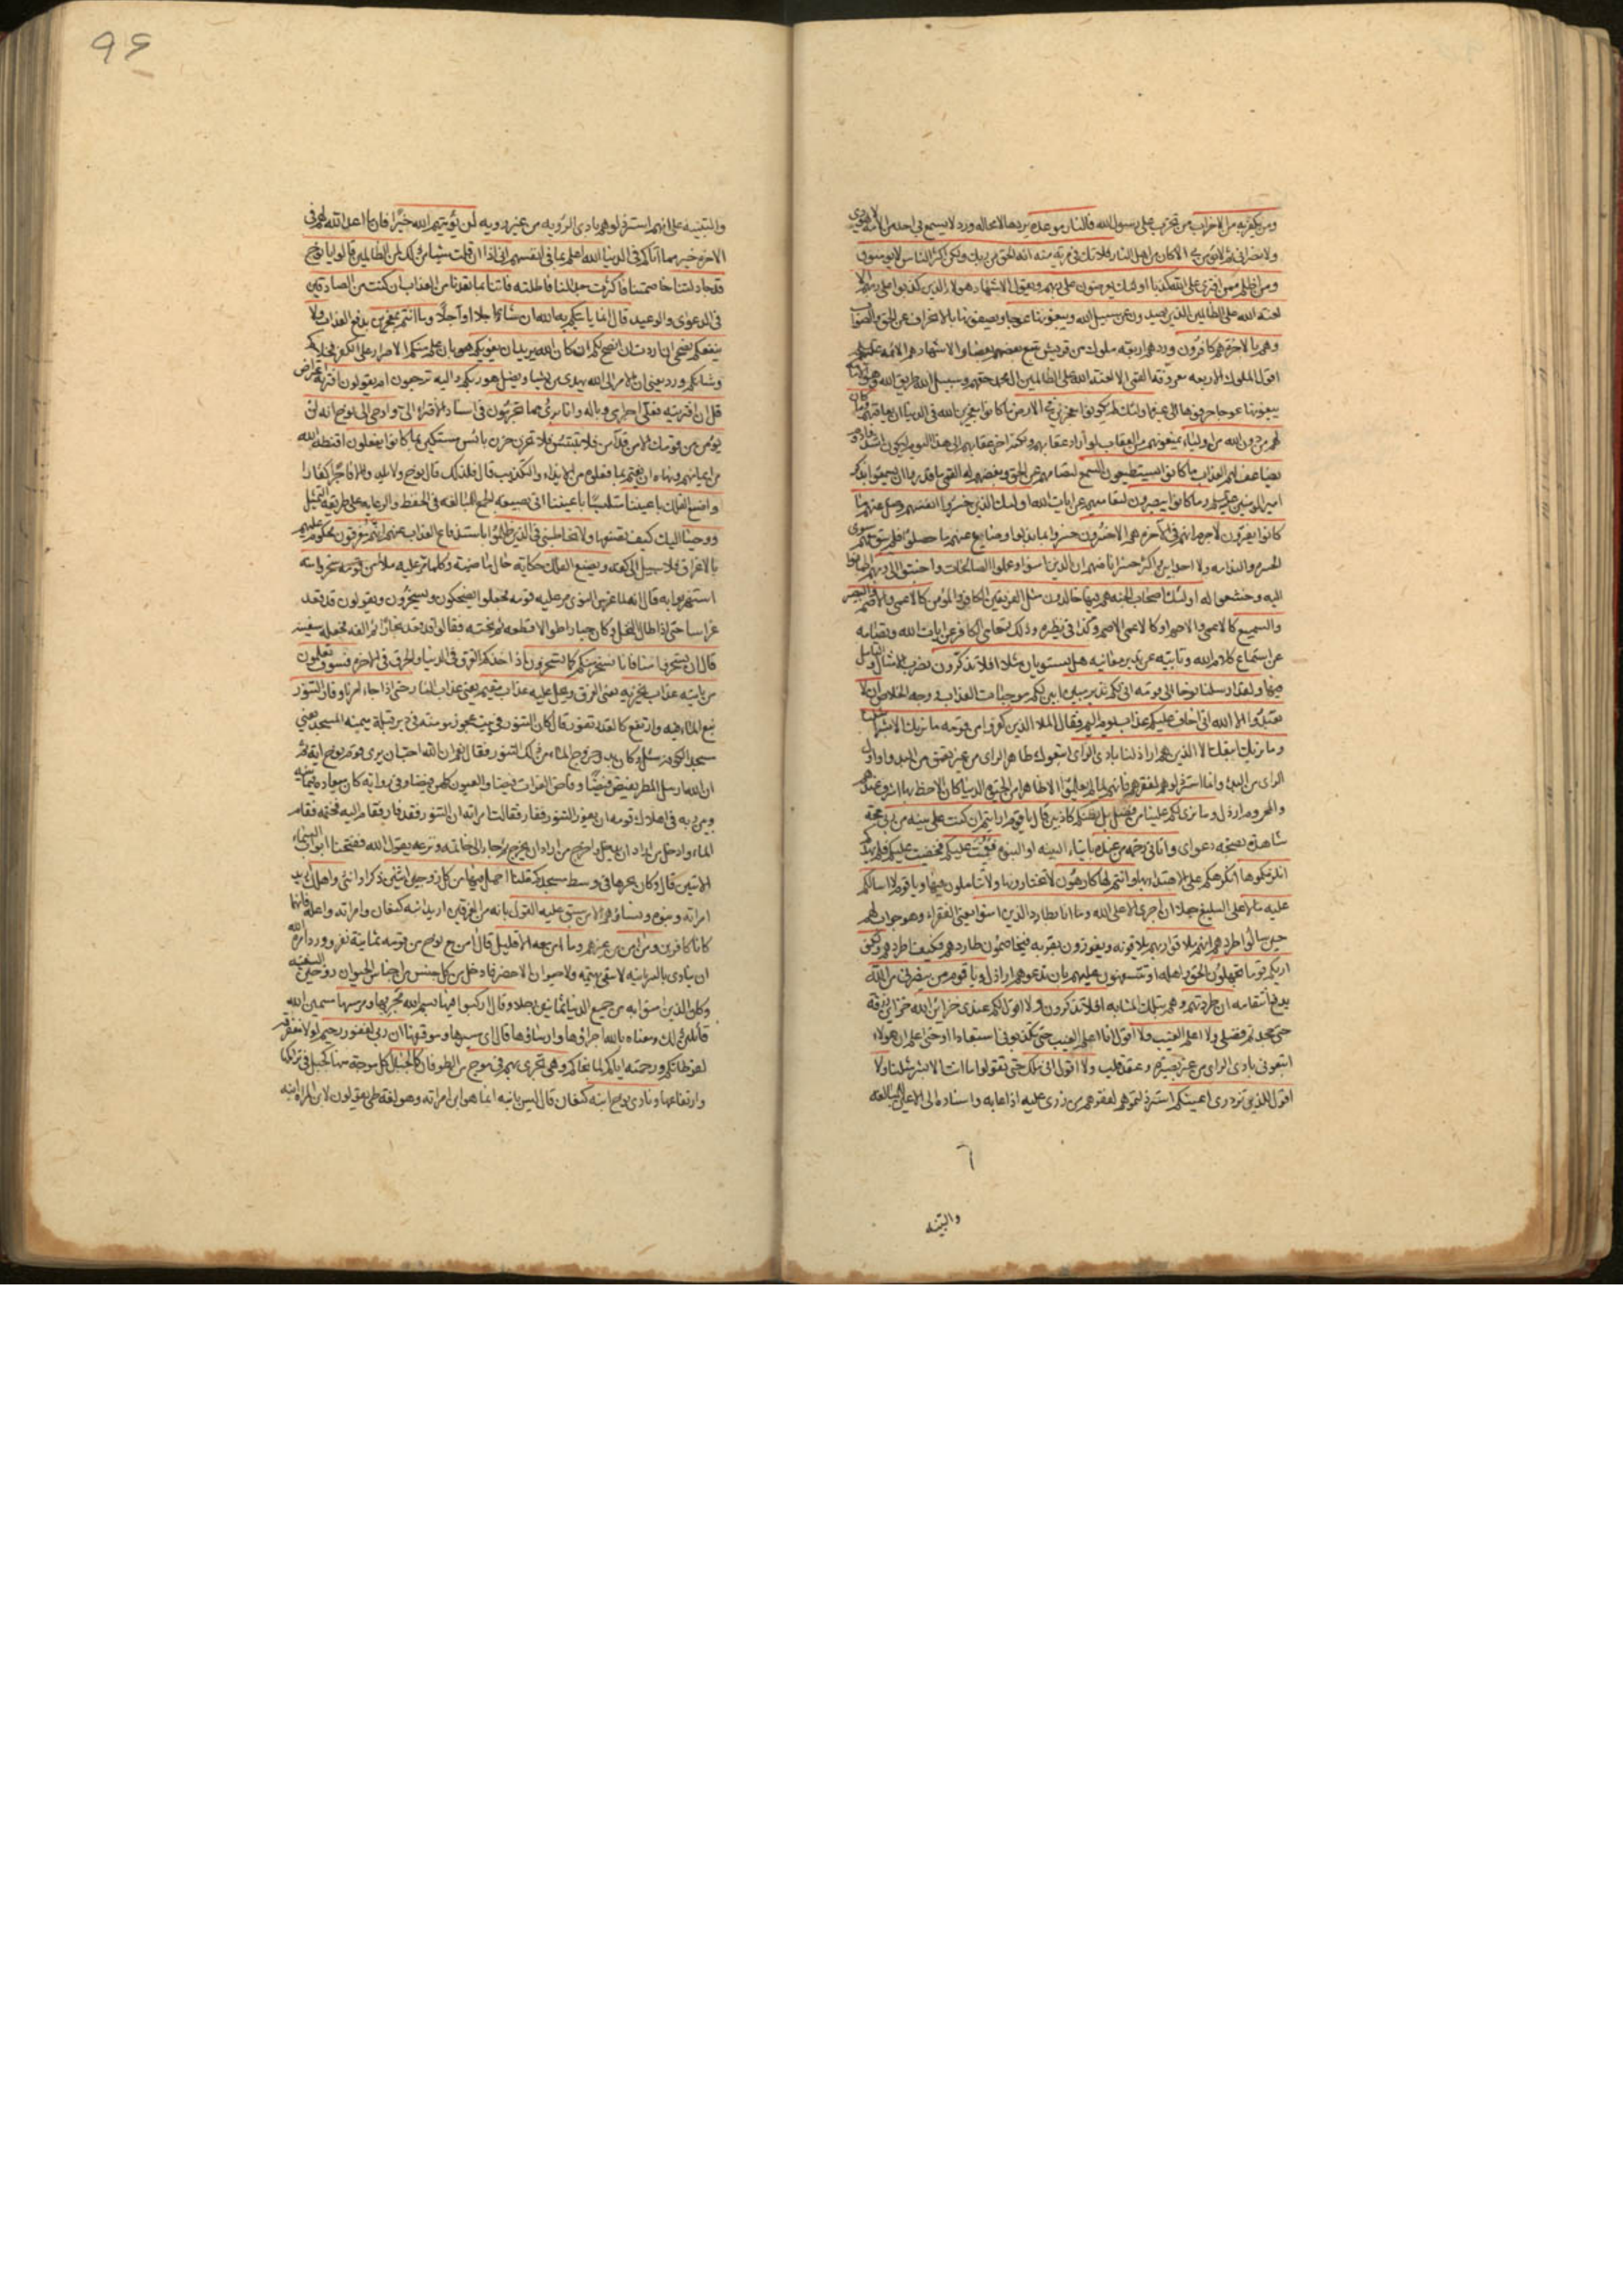 ومن يكفر به من الاحزاب من تحزب على رسول الله فالنار موعده يردها لا محاله ورد لا يسمع بى احد من الامة لا يهودى
ولا نصرانى ثم لا يؤمن بى الا كان من اهل النار فلا تك فى مرية منه انه الحق من ربك ولكن اكثر الناس لا يومنون
ومن اظلم ممن افترى على الله كذبا اولئك يعرضون على ربهم ويقول الاشهاد هولاء الذين كذبوا على ربهم الا
لعنة الله على الظالمين الذين يصدون عن سبيل الله ويبغونها عوجا ويصفونها بالانحراف عن الحق والصواب
وهم بالاخرة هم كافرون ورد هم اربعة ملوك من قريش تبع بعضهم بعضا والاشهاد هم الائمه عليهم
اقول الملوك الاربعه معروفة القمى الا لعنة الله على الظالمين ال محمد حقهم وسبيل الله طريق الله
يبغونها عوجا حرفوها الى غيرها اولئك لم يكونوا معجزين فى الارض ما كانوا معجزين الله فى الدنيا ان يعاقبهم وما كان
لهم من دون الله من اولياء يمنعونهم من العقاب لو اراد عقابهم ولكنه اخر عقابهم الى هذا اليوم ليكون اشد وادوم
يضاعف لهم العذاب ما كانوا يستطيعون السمع لتصامهم عن الحق وبغضهم له القمى ما قدروا ان يسمعوا بذكر
امير المؤمنين وما كانوا يبصرون لتعاميهم عن ايات الله اولئك الذين خسروا انفسهم وضل عنهم ما
كانوا يفترون لا جرم انهم فى الاخرة هم الاخسرون خسروا بما بدلوا وضاع عنهم ما حصلوا فلم يبق معهم سوى
الحسرة والندامه ولا احد ابين واكثر خسرانا منهم ان الذين امنوا وعملوا الصالحات واخبتوا الى ربهم اطمانوا
اليه وخشعوا له اولئك اصحاب الجنة هم فيها خالدون مثل الفريقين الكافر والمؤمن كالاعمى والاصم والبصير
والسميع كالاعمى والاصم او كالاعمى الاصم وكذا فى نظيره وذلك لتعامى الكافر عن ايات الله وتصامه
عن استماع كلام الله وتابيه عن تدبر معانيه هل يستويان مثلا افلا تذكرون بضرب الامثال والتامل
فيها ولقد ارسلنا نوحا الى قومه انى لكم نذير مبين ابين لكم موجبات العذاب ووجه الخلاص ان لا
تعبدوا الا الله انى اخاف عليكم عذاب يوم اليم فقال الملا الذين كفروا من قومه ما نريك الا بشرا مثلنا
وما نريك اتبعك الا الذين هم اراذلنا بادى الراى اتبعوك ظاهر الراى من غير تعمق من البدو او اول
الراى من البدء وانما استرذلوهم لفقرهم فانهم لما لم يعلموا الا ظاهرا من الحيوة الدنيا كان الاحظ بها اشرف عندهم
والمحروم ارذل وما نرى لكم علينا من فضل بل نظنكم كاذبين قال يا قوم ارايتم ان كنت على بينة من ربى حجة
شاهدة بصحة دعواى واتانى رحمة من عنده بايتاء البينه او النبوة فعميت عليكم فخفيت عليكم فلم يهدكم
انلزمكموها انكرهكم على الاهتداء بها وانتم لها كارهون لا تختارونها ولا تتاملون فيها ويا قوم لا اسالكم
عليه مالا على التبليغ جعلا ان اجرى الا على الله وما انا بطارد الذين امنوا يعنى الفقراء وهو جواب لهم
حين سالوا طردهم انهم ملاقوا ربهم يلاقونه ويفوزون بقربه فيخاصمون طاردهم فكيف اطردهم ولكنى
اريكم قوما تجهلون الحق واهله او تتسفهون عليهم بان تدعوهم اراذل ويا قوم من ينصرنى من الله
يدفع انتقامه ان طردتهم وهم بتلك المثابه افلا تذكرون ولا اقول لكم عندى خزائن الله خزائن رزقه
حتى جحدتم فضلى ولا اعلم الغيب ولا اقول انا اعلم الغيب حتى تكذبونى استبعادا او حتى اعلم ان هولاء
اتبعونى بادى الراى من غير بصيرة وعقد قلب ولا اقول انى ملك حتى تقولوا ما انت الا بشر مثلنا ولا
اقول للذين تزدرى اعينكم استرذلتموهم لفقرهم من زرى عليه اذا عابه واسناده الى الاعين للمبالغة
والتنبيه
٩٦
والتنبيه على انهم استرذلوهم بادى الرؤيه من غير رويه لن يؤتيهم الله خيرا فان ما اعد الله لهم فى
الاخرة خير مما اتاكم فى الدنيا الله اعلم بما فى انفسهم انى اذا ان قلت شيئا من ذلك لمن الظالمين قالوا يا نوح
قد جادلتنا خاصمتنا فاكثرت جدالنا فاطلته فاتنا بما تعدنا من العذاب ان كنت من الصادقين
فى الدعوى والوعيد قال انما ياتيكم به الله ان شاء عاجلا او آجلا وما انتم بمعجزين بدفع العذاب ولا
ينفعكم نصحى ان اردت ان انصح لكم ان كان الله يريد ان يغويكم هو بان علم منكم الاصرار على الكفر فخلاكم
وشانكم ورد يعنى ان الامر الى الله يهدى من يشاء ويضل هو ربكم واليه ترجعون ام يقولون افتريه اعتراض
قل ان افتريته فعلى اجرامى وباله وانا برئ مما تجرمون فى اسناد الافتراء الى واوحى الى نوح انه لن
يؤمن من قومك الا من قد آمن فلا تبتئس فلا تحزن حزن بائس مستكين بما كانوا يفعلون اقنطه الله
من ايمانهم ونهاه ان يغتم بما فعلوه من الايذاء والتكذيب قال فلذلك قال نوح ولا يلدوا الا فاجرا كفارا
واصنع الفلك باعيننا متلبسا باعيننا اتى بصيغه الجمع للمبالغه فى الحفظ والرعايه على طريقه التمثيل
ووحينا اليك كيف تصنعها ولا تخاطبنى فى الذين ظلموا باستدفاع العذاب عنهم انهم مغرقون محكوم عليهم
بالاغراق فلا سبيل الى كفه ويصنع الفلك حكاية حال ماضية وكلما مر عليه ملأ من قومه سخروا منه
استهزءوا به قال لما غرس النوى مر عليه قومه فجعلوا يضحكون ويسخرون ويقولون قد قعد
غراسا حتى اذا طال النخل وكان جبارا طوالا قطعه ثم نحته فقالوا قد قعد نجارا ثم الفه فجعله سفينه
قال ان تسخروا منا فانا نسخر منكم كما تسخرون اذا اخذكم الغرق فى الدنيا والحرق فى الاخرة فسوف تعلمون
من ياتيه عذاب يخزيه يعنى الغرق ويحل عليه عذاب مقيم يعنى عذاب النار حتى اذا جاء امرنا وفار التنور
نبع الماء فيه وارتفع كالقدر تفور قال كان التنور فى بيت عجوز مومنة فى دبر قبلة ميمنة المسجد يعنى
مسجد الكوفة سئل وكان بدو خروج الماء من ذلك التنور فقال نعم ان الله احب ان يرى قوم نوح اية ثم
ان الله ارسل المطر يفيض فيضا وفاض الفرات فيضا والعيون كلهن فيضا وفى رواية كان ميعاد فيما بينه
وبين ربه فى اهلاك قومه ان يفور التنور ففار فقالت امراته ان التنور قد فار فقام اليه فختمه فقام
الماء وادخل من اراد ان يدخل واخرج من اراد ان يخرج ثم جاء الى خاتمه ونزعه يقول الله ففتحنا ابواب السماء
الايتين قال وكان نجرها فى وسط مسجدكم قلنا احمل فيها من كل زوجين اثنين ذكرا وانثى واهلك اريد
امراته وبنوه ونساؤهم الا من سبق عليه القول بانه من المغرقين اريد ابنه كنعان وامراته واعلة فانهما
كانا كافرين ومن امن من غيرهم وما امن معه الا قليل قال امن مع نوح من قومه ثمانية نفر وورد امره الله
ان ينادى بالسريانيه لا يبقى بهيمه ولا حيوان الا حضر فادخل من كل جنس من اجناس الحيوان زوجين السفينه
وكان الذين امنوا به من جميع الدنيا ثمانين رجلا وقال اركبوا فيها بسم الله مجريها ومرسيها مسمين الله
قائلين ذلك ومعناه بالله اجراؤها وارساؤها قال اى مسيرها وموقفها ان ربى لغفور رحيم لولا مغفرته
لفرطاتكم ورحمته اياكم لما نجاكم وهى تجرى بهم فى موج من الطوفان كالجبال كل موجة منها كجبل فى تراكمها
وارتفاعها ونادى نوح ابنه كنعان قال ليس بابنه انما هو ابن امراته وهو لغة طى يقولون لابن المراة ابنه